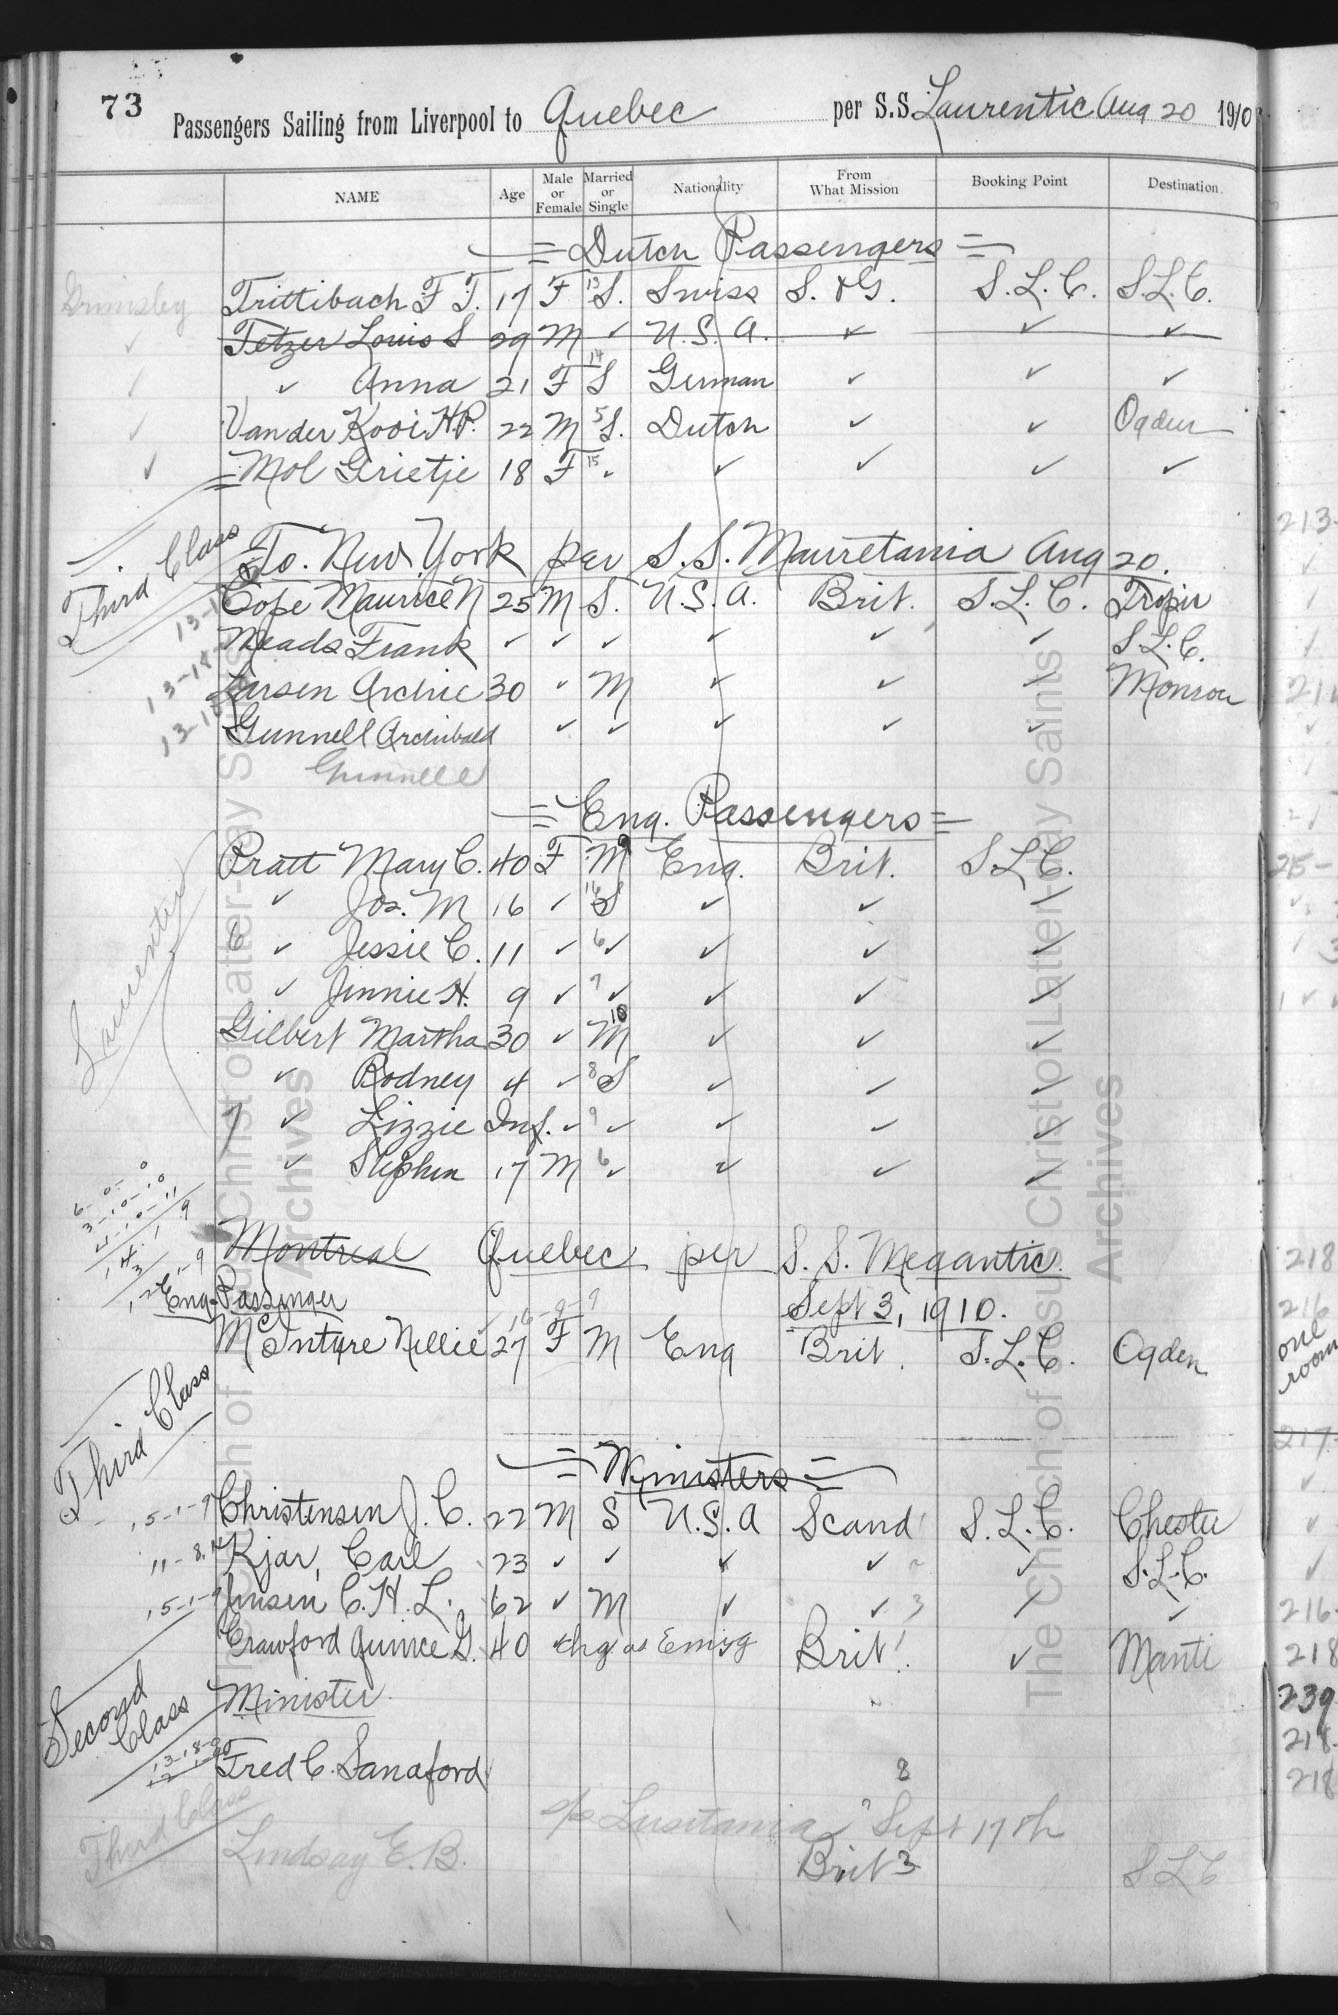 73 Passengers Sailing from Liverpool to Quebec per S.S. Laurentic Aug 20 1910
NAME Age Male or Female Married or Single Nationality From What Mission Booking Point Destination
= Dutch Passengers =
Grimsby Trittibach F T. 17 F 13 S. Swiss S. & G. S. L. C. S.L.C.
✓ Tetzer Louis S 29 M ✓ U.S.A. ✓ ✓ ✓
✓ ✓ Anna 21 F 14 S German ✓ ✓ ✓
✓ Vander Kooi H.P. 22 M 5 S. Dutch ✓ ✓ Ogden
✓ Mol Grietje 18 F 15 ✓ ✓ ✓ ✓ ✓
Third Class
To. New York per S.S. Mauretania Aug 20.
Cope Maurice N 25 M S. U.S.A. Brit. S.L.C.
Meads Frank ✓ ✓ ✓ ✓ ✓ ✓ S.L.C.
Larsen Archie 30 ✓ M ✓ ✓ ✓ Monroe
Gunnell Archibald ✓ ✓ ✓ ✓ ✓
= Eng. Passengers =
Pratt Mary C. 40 F M Eng. Brit. S.L.C.
✓ Jos. M 16 ✓ 16 S ✓ ✓ ✓
6 ✓ Jessie C. 11 ✓ 6 ✓ ✓ ✓ ✓
✓ Jinnie H. 9 ✓ 7 ✓ ✓ ✓ ✓
Laurentic
Gilbert Martha 30 ✓ 10 M ✓ ✓ ✓
✓ Rodney 4 ✓ 8 S ✓ ✓ ✓
7 ✓ Lizzie Inf. ✓ 9 ✓ ✓ ✓ ✓
✓ Stephen 17 M 6 ✓ ✓ ✓ ✓
Montreal Quebec per S.S. Megantic
Eng. Passenger Sept 3, 1910.
McIntyre Nellie 27 F M Eng Brit. S.L.C. Ogden
Third Class
= Ministers =
15-1-9 Christensen J. C. 22 M S U.S.A Scand S.L.C. Chester
Kjar, Carl 23 ✓ ✓ ✓ ✓ ✓ S.L.C.
15-1-9 Jensen C. H. L. 62 ✓ M ✓ ✓ 3 ✓ ✓
Crawford Quince G. 40 chg as Emig Brit. ✓ Manti
Second Class
Minister
Fred C. Sandford 8
Third Class
s/s Lusitania Sept 17th
Lindsay E.B. Brit 3 SLC
The Church of Jesus Christ of Latter-day Saints
Archives
The Church of Jesus Christ of Latter-day Saints
Archives
218
216
one room
217
216
218
239
218
218